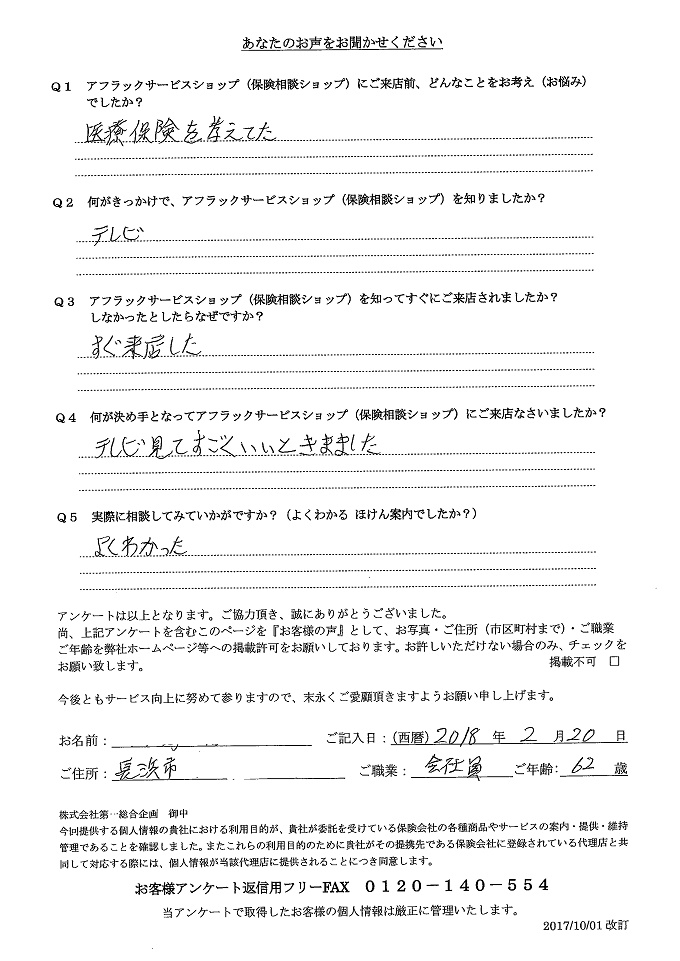 あなたのお声をお聞かせください
Q1 アフラックサービスショップ（保険相談ショップ）にご来店前、どんなことをお考え（お悩み）
でしたか？
医療保険を考えてた
Q2 何がきっかけで、アフラックサービスショップ（保険相談ショップ）を知りましたか？
テレビ
Q3 アフラックサービスショップ（保険相談ショップ）を知ってすぐにご来店されましたか？
しなかったとしたらなぜですか？
すぐ来店した
Q4 何が決め手となってアフラックサービスショップ（保険相談ショップ）にご来店なさいましたか？
テレビ見てすごくいいときまました
Q5 実際に相談してみていかがですか？（よくわかる ほけん案内でしたか？）
よくわかった
アンケートは以上となります。ご協力頂き、誠にありがとうございました。
尚、上記アンケートを含むこのページを『お客様の声』として、お写真・ご住所（市区町村まで）・ご職業
ご年齢を弊社ホームページ等への掲載許可をお願いしております。お許しいただけない場合のみ、チェックを
お願い致します。 掲載不可 □
今後ともサービス向上に努めて参りますので、末永くご愛顧頂きますようお願い申し上げます。
お名前： ご記入日：（西暦）2018 年 2 月 20 日
ご住所：長浜市 ご職業： 会社員 ご年齢：62 歳
株式会社第一総合企画 御中
今回提供する個人情報の貴社における利用目的が、貴社が委託を受けている保険会社の各種商品やサービスの案内・提供・維持
管理であることを確認しました。またこれらの利用目的のために貴社がその提携先である保険会社に登録されている代理店と共
同して対応する際には、個人情報が当該代理店に提供されることにつき同意します。
お客様アンケート返信用フリーFAX 0120－140－554
当アンケートで取得したお客様の個人情報は厳正に管理いたします。
2017/10/01 改訂